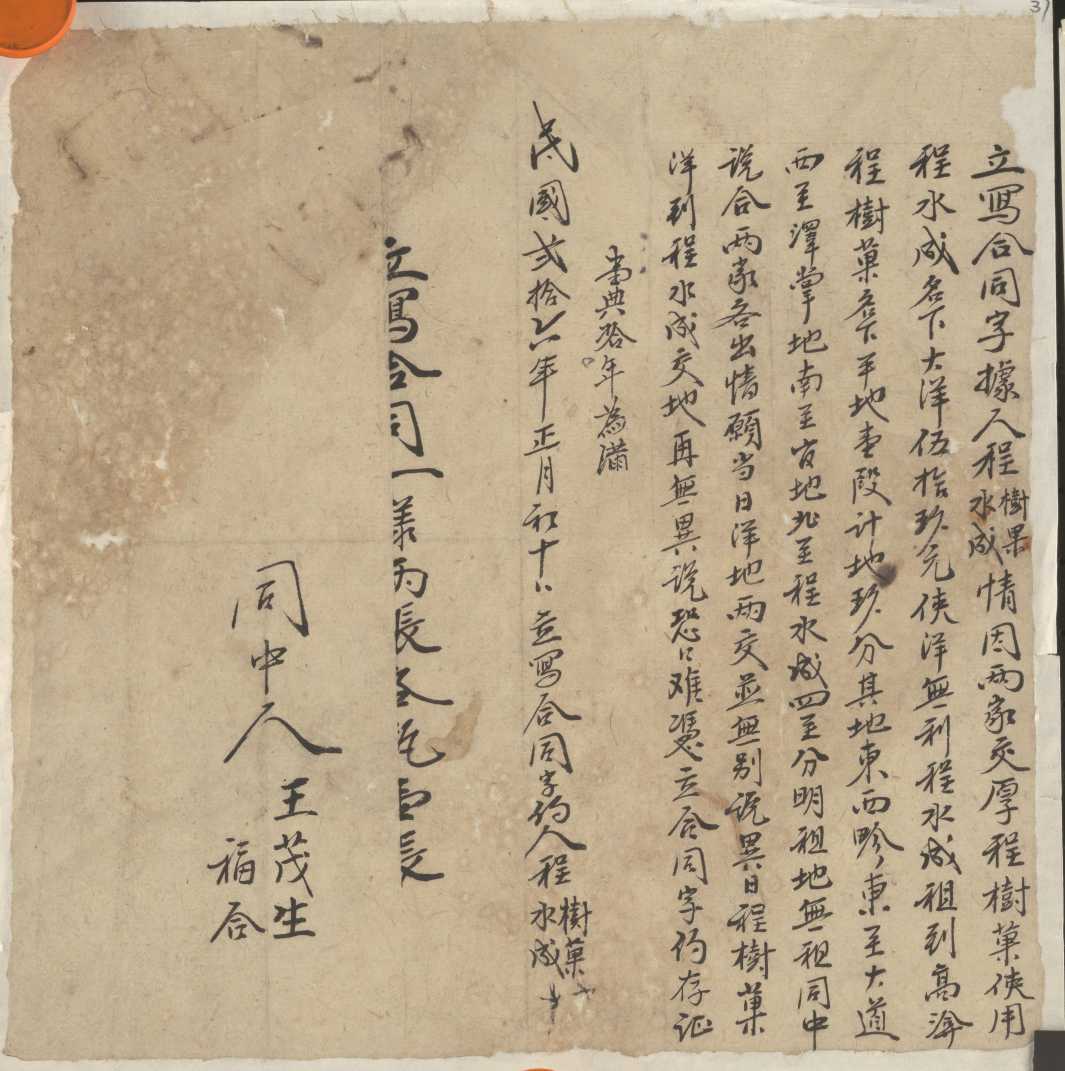 立寫合同字據人程樹果水成情因兩家交厚程樹菓使用
程水成名下大洋伍拾玖元使洋無利程水成租到高海
程樹菓名下平地壹段計地玖分其地東西畛東至大道
西至澤掌地南至官地北至程水成四至分明祖地無租同中
说合两家各出情願当日洋地两交並無别说異日程樹菓
洋到程水成交地再無異说恐口难憑立合同字約存证
當典拾年為滿
民國弍拾六年正月初十日立寫合同字約人程樹菓水成十
立寫合同一樣两長各执壹長
同中人王茂生
福合
37